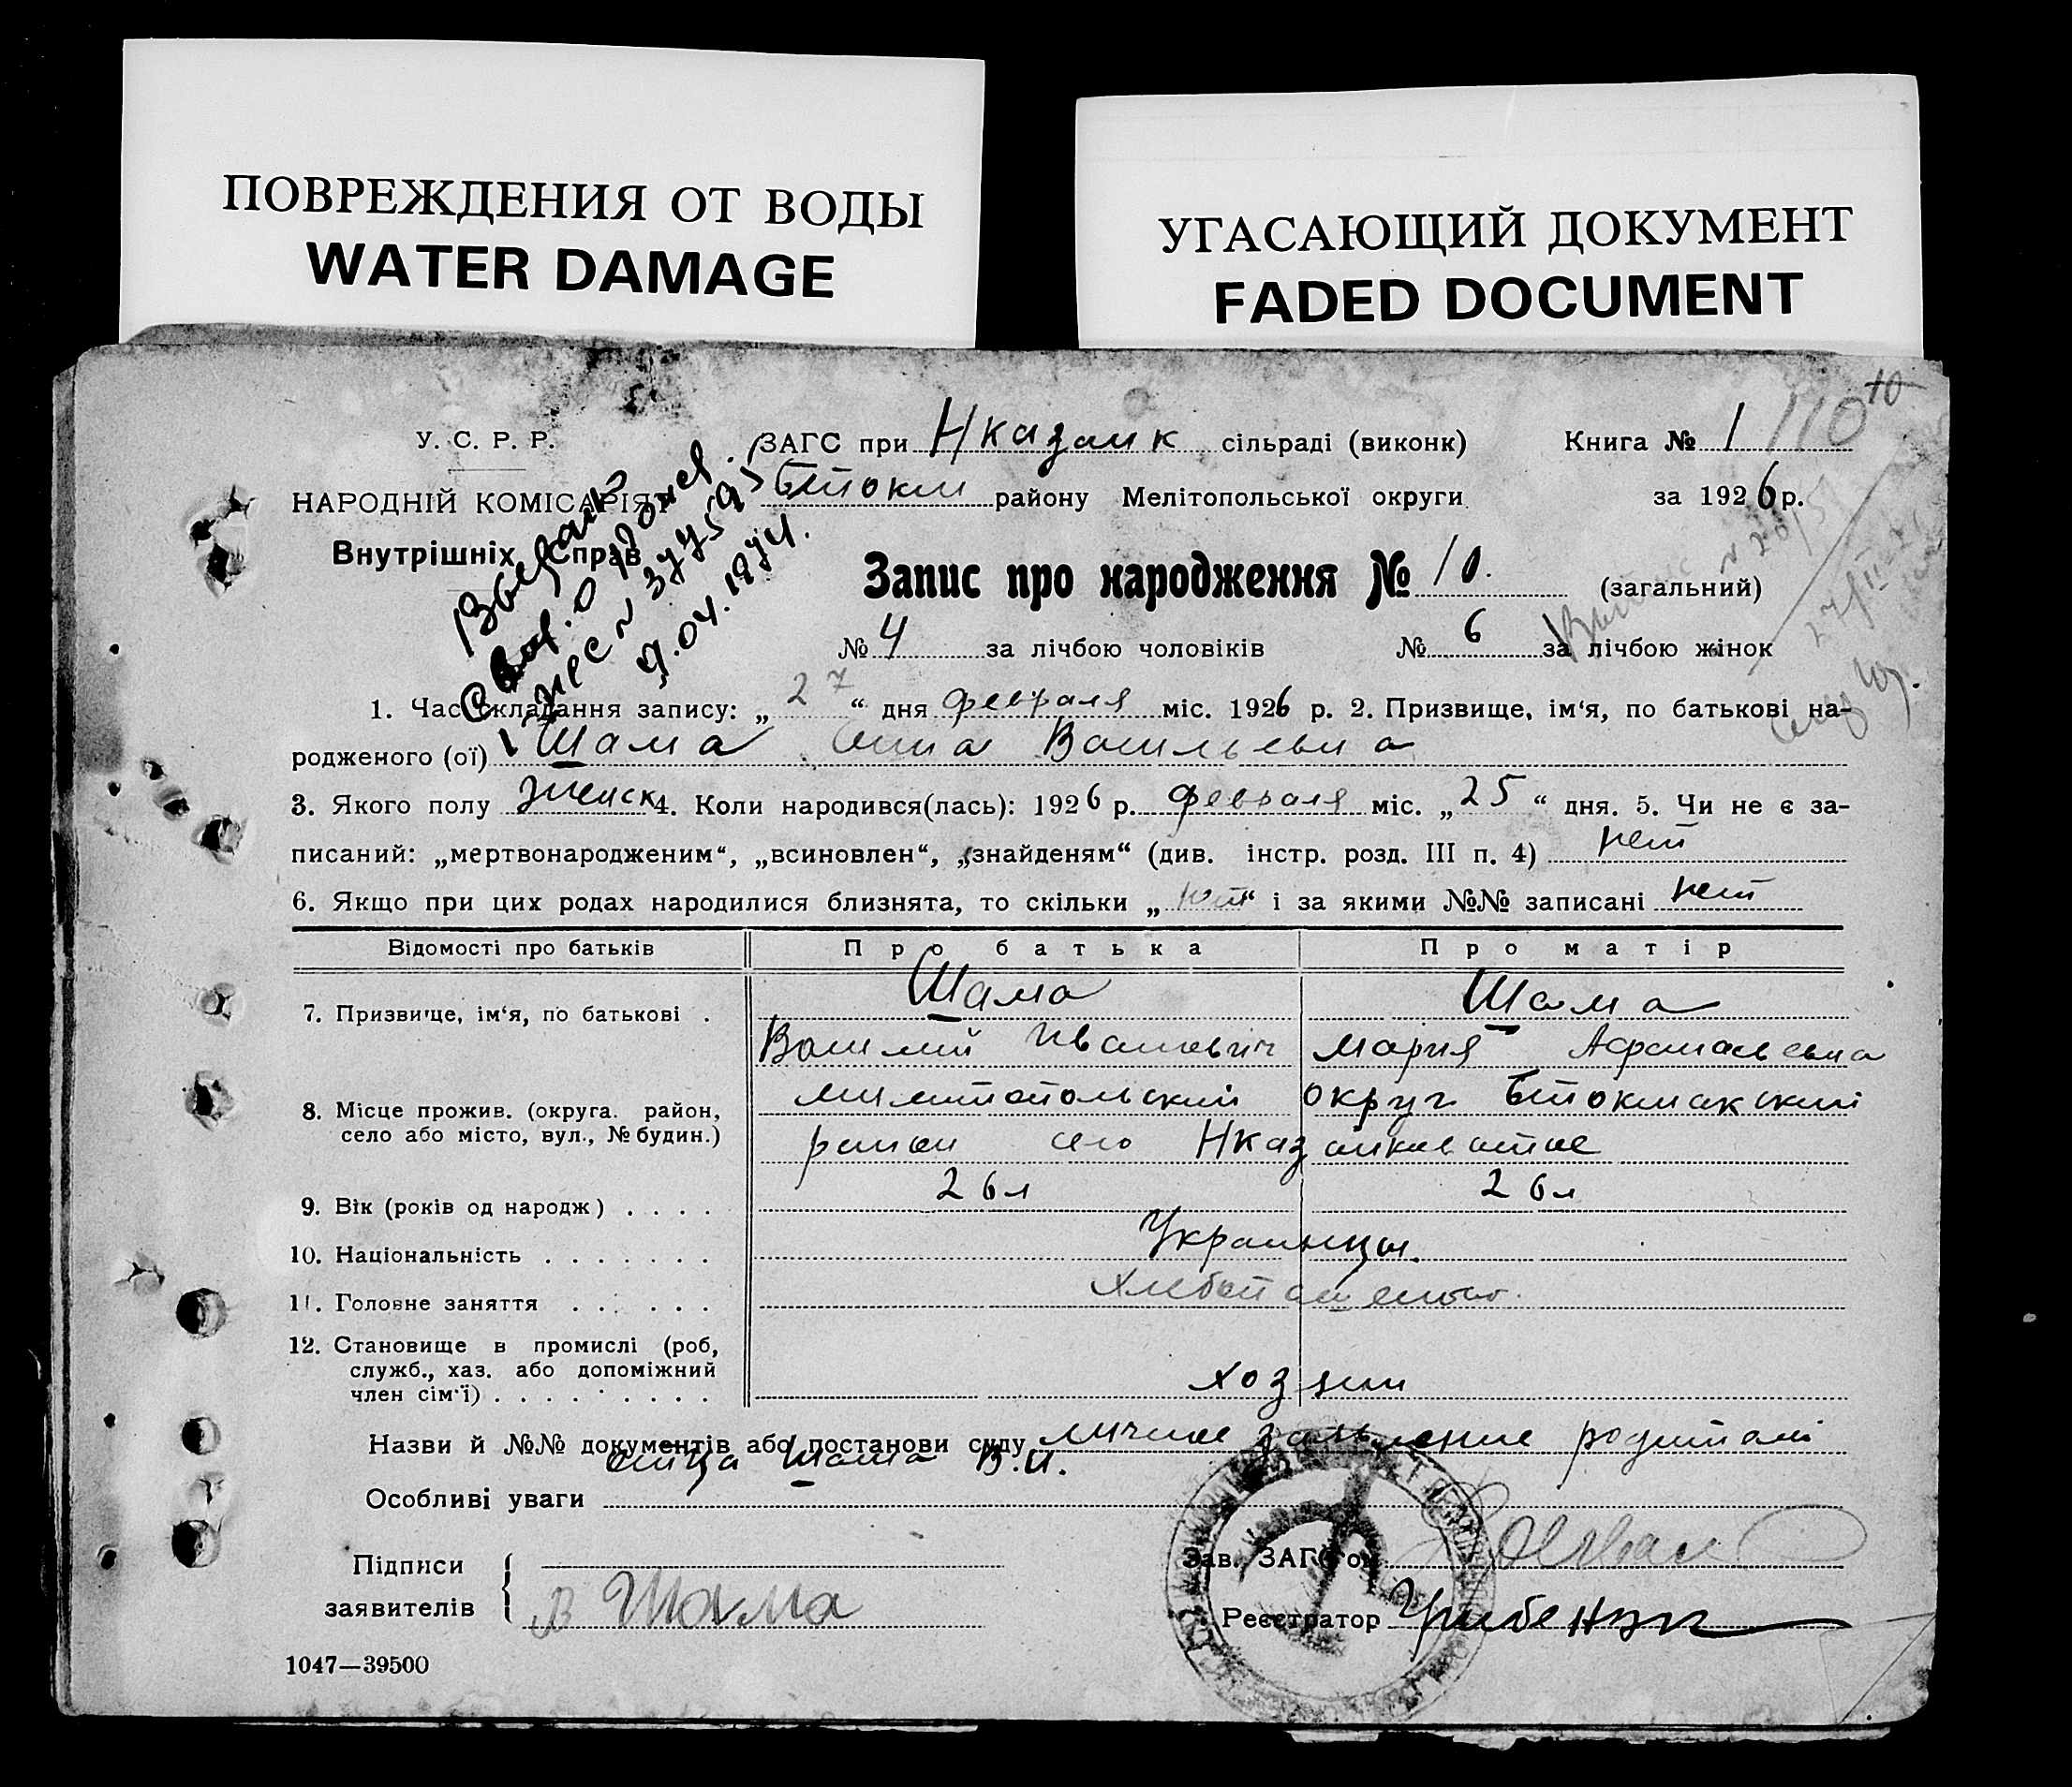 ПОВРЕЖДЕНИЯ ОТ ВОДЫ
WATER DAMAGE
УГАСАЮЩИЙ ДОКУМЕНТ
FADED DOCUMENT
10
110
У. С. Р. Р.
ЗАГС при Нказанк сільраді (виконк)
Книга № 1
НАРОДНІЙ КОМІСАРІЯТ
Бток районy Мелітопольської округи
за 1926 р.
Внутрішніх Справ
Запис про народження № 10. (загальний)
№ 4 за лічбою чоловіків
№ 6 за лічбою жінок
Выдано
свид. о рожд.
9.04.1974.
1. Час складання запису: „27“ дня февраля міс. 1926 р. 2. Призвище, ім‘я, по батькові на-
родженого (ої) Шама Анна Васильевна
3. Якого полу женск 4. Коли народився(лась): 1926 р. февраля міс. „25“ дня. 5. Чи не є за-
писаний: „мертвонародженим“, „всиновлен“, „знайденям“ (див. інстр. розд. III п. 4) нет
6. Якщо при цих родах народилися близнята, то скільки „нет“ і за якими №№ записані нет
Відомості про батьків
Про батька
Про матір
7. Призвище, ім‘я, по батькові .
Шама
Василий Иванович
Шама
Мария Афанасьевна
8. Місце прожив. (округа. район,
село або місто, вул., № будин.)
Милитопольский округ Бтокмакский
район село Нказанковатое
9. Вік (років од народж) . . . .
26 л
26 л
10. Національність . . . . . . .
Украинцы.
11. Головне заняття . . . . . .
Хлебопашество.
12. Становище в промислі (роб,
служб., хаз. або допоміжний
член сім‘ї) . . . . . . . . .
хозяин
Назви й №№ документів або постанови суду личное заявление родителя
отца Шама В.И.
Особливі уваги
Підписи
заявителів
В Шама
Зав. ЗАГС‘ом
Реєстратор
1047—39500